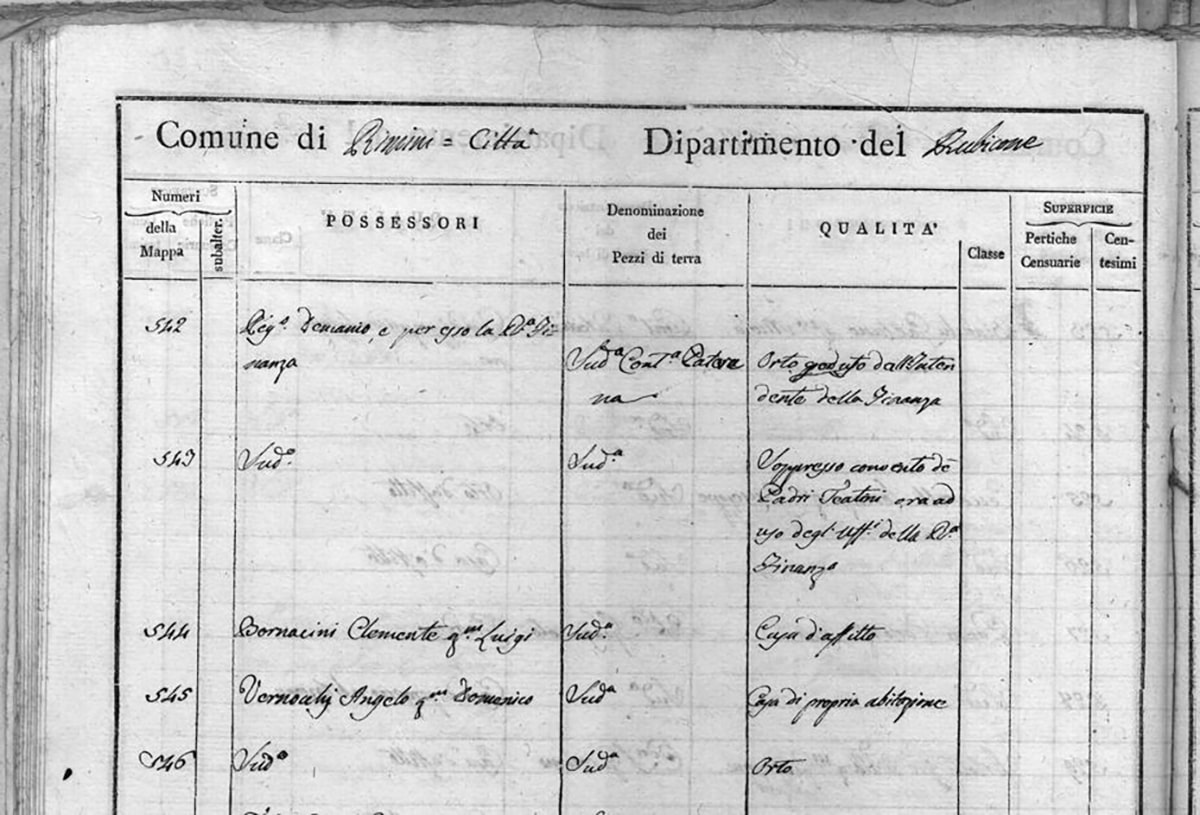 Comune di Rimini = Città Dipartimento del Rubicone
Numeri
della
Mappa
subalter.
POSSESSORI
Denominazione
dei
Pezzi di terra
QUALITA'
Classe
SUPERFICIE
Pertiche
Censuarie
Cen-
tesimi
542 Reg.° Demanio, e per esso la R.a Fi
nanza
Sud.a Cont.a Patara
na
Orto goduto dall'Inten
dente della Finanza
543 Sud.° Sud.a Soppresso convento de
Padri Teatini ora ad
uso degl'uff.i della R.a
Finanza
544 Bornacini Clemente q.m Luigi Sud.a Casa d'affitto
545 Angelo q.m Domenico Sud.a Casa di propria abitazione
546 Sud.° Sud.a Orto